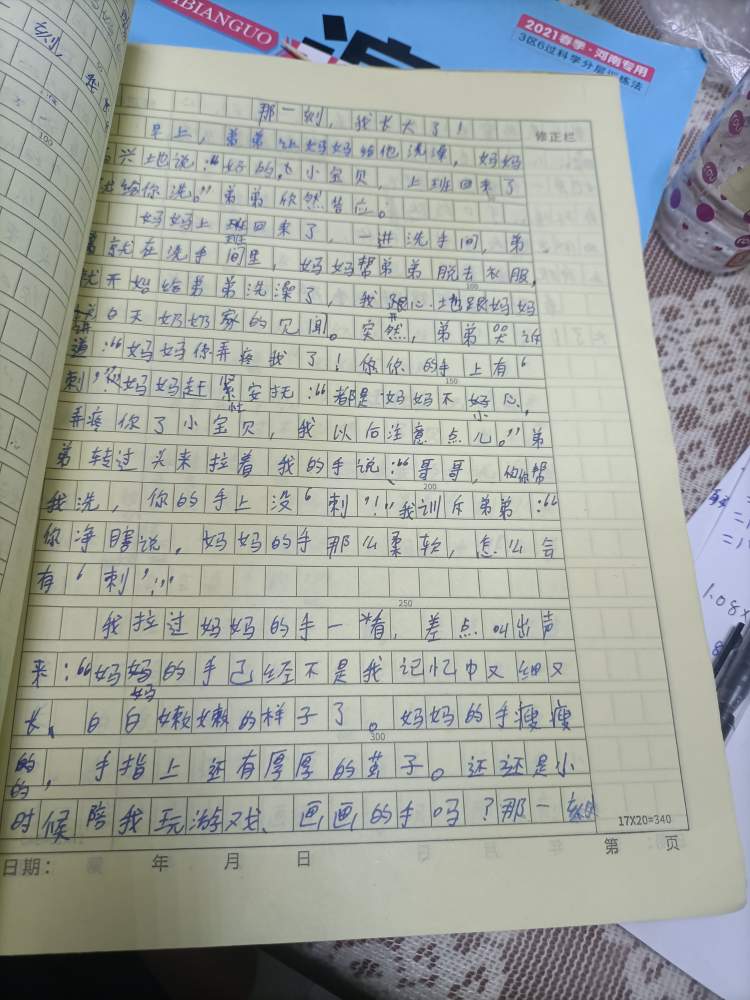 BIANGUO
2021春季·河南专用
3区6过科学分层训练法
刻
100
那一刻,我长大了!
修正栏
早上,弟弟让妈妈给他洗澡,妈妈
兴地说:“好的,小宝贝,上班回来了
给你洗。”弟弟欣然答应。
妈妈上班回来了,一进洗手间,弟
班
就在洗手间里,妈妈帮弟弟脱去衣服,
100
就开始给弟弟洗澡了,我开心地跟妈妈
讲白天奶奶家的见闻。突然,弟弟哭诉
道:“妈妈你弄疼我了!你你的手上有‘
150
刺’”妈妈赶紧安抚:“都是妈妈不好
小心,
弄疼你了小宝贝,我以后注意点儿。”弟
弟转过头来拉着我的手说:“哥哥,你帮
200
我洗,你的手上没‘刺’!”我训斥弟弟:“
你净瞎说,妈妈的手那么柔软,怎么会
有‘刺’!”
250
我拉过妈妈的手一看,差点叫出声
来:“妈妈的手已经不是我记忆中又细又
妈
长、白白嫩嫩的样子了。妈妈的手瘦瘦
300
的,手指上还有厚厚的茧子。这还是小
的
时候陪我玩游戏、画画的手吗?那一刻
17X20=340
日期: 年 月 日
第 页
1.08x